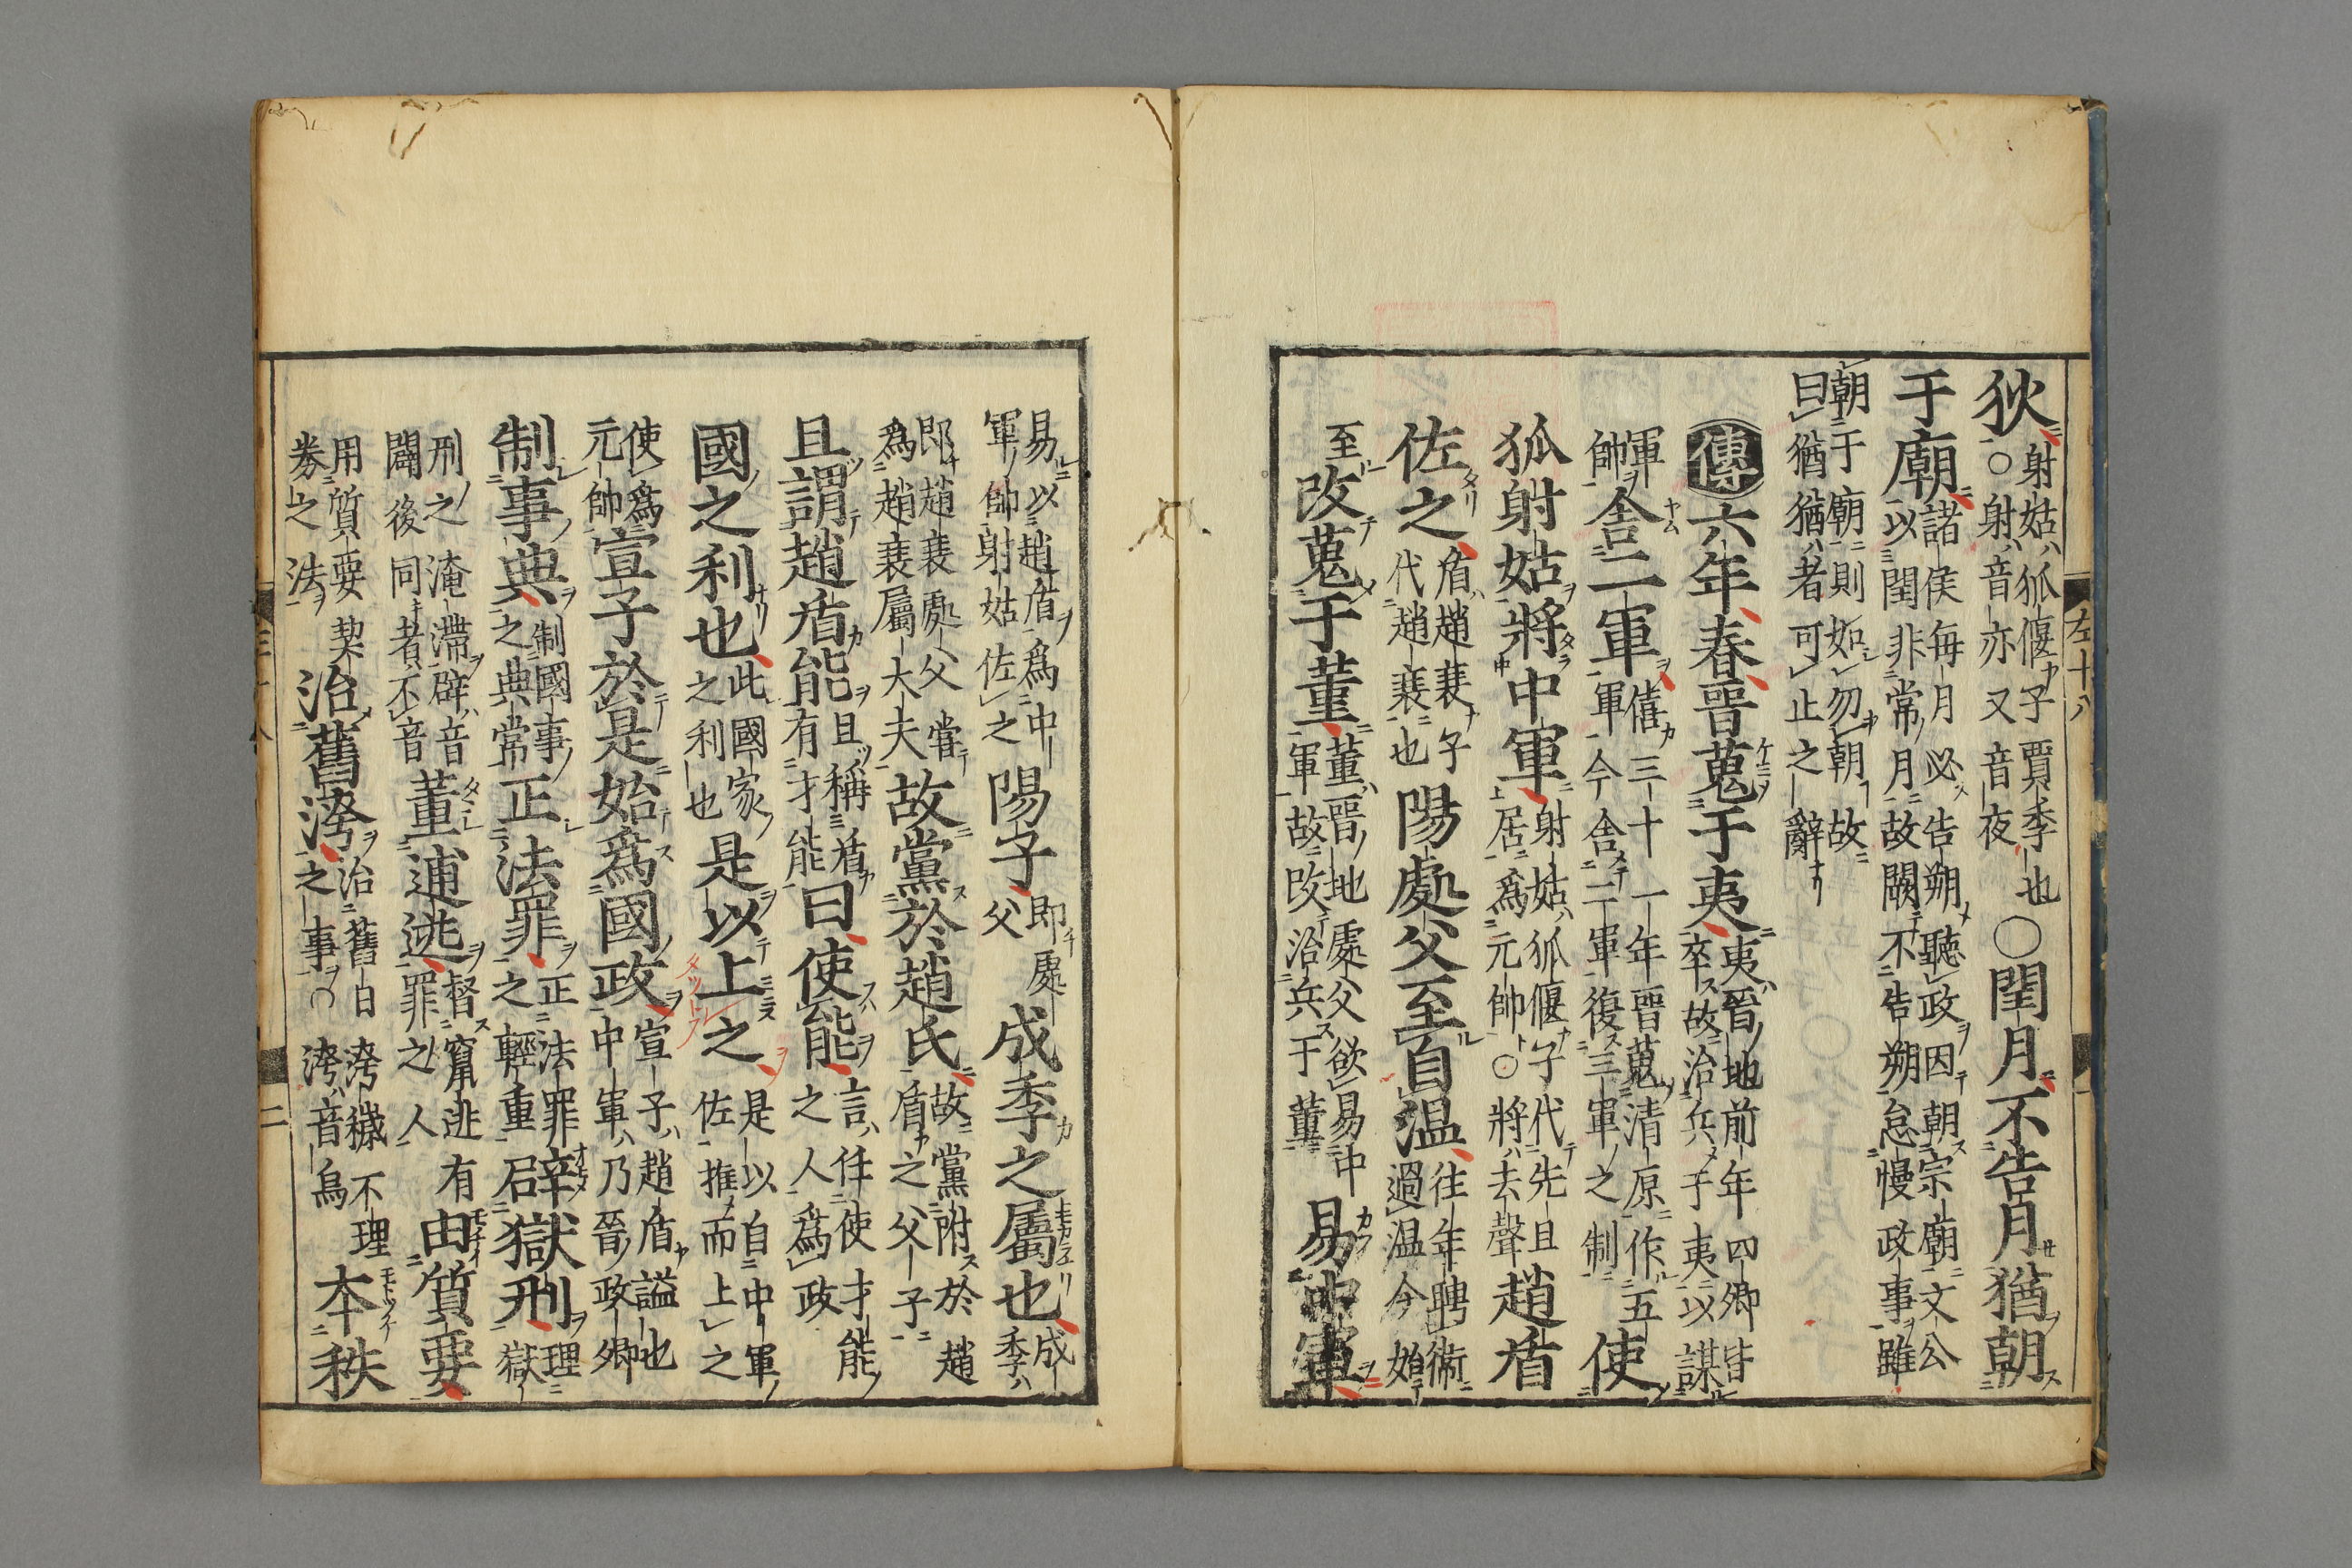 狄射姑狐偃子賈季也○射音亦又音夜○閏月不告月猶朝
于廟諸侯每月必告朔聽政因朝宗廟文公以閏非常月故闕不告朔怠慢政事雖
朝于廟則如勿朝故曰猶猶者可止之辭
傳六年春晉蒐于夷夷晉地前年四卿卒故治兵于夷以謀
軍帥舍二軍僖三十一年晉蒐清原作五軍今舍二軍復三軍之制使
狐射姑將中軍射姑狐偃子代先且居爲元帥○將去聲趙盾
佐之盾趙衰子代趙衰也陽處父至自温往年聘衛過温今始
至改蒐于董董晉地處父欲易中軍故改治兵于董易中軍
易以趙盾爲中軍帥射姑佐之陽子即處父成季之屬也成季
即趙衰處父嘗爲趙衰屬大夫故黨於趙氏故黨附於趙盾之父子
且謂趙盾能且稱盾有才能曰使能言任使才能之人爲政
國之利也此國家之利也是以上之是以自中軍佐推而上之
使爲元帥宣子於是始爲國政宣子趙盾謚也中軍乃晉政卿
制事典制國事之典常正法罪正法罪之輕重辟獄刑理獄
刑之淹滯辟音闢後同者不音董逋逃督竄逃有罪之人由質要
用質要契劵之法治舊洿治舊日洿穢不理之事○洿音烏本秩
左十八
二